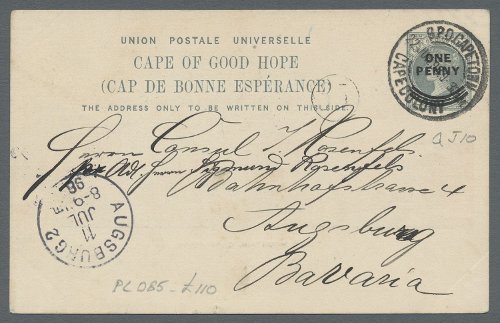 UNION POSTALE UNIVERSELLE
CAPE OF GOOD HOPE
(CAP DE BONNE ESPÉRANCE)
THE ADDRESS ONLY TO BE WRITTEN ON THIS SIDE.
ONE
PENNY
G.P.O. CAPETOWN
CAPE COLONY
QJ10
Herrn Consul I. Rosenfels
Adr. Herrn Sigmund Rosenfels
Bahnhofstrasse 4
Augsburg
Bavaria
AUGSBURG 2
11
JUL
8-9
96
PL085-£110